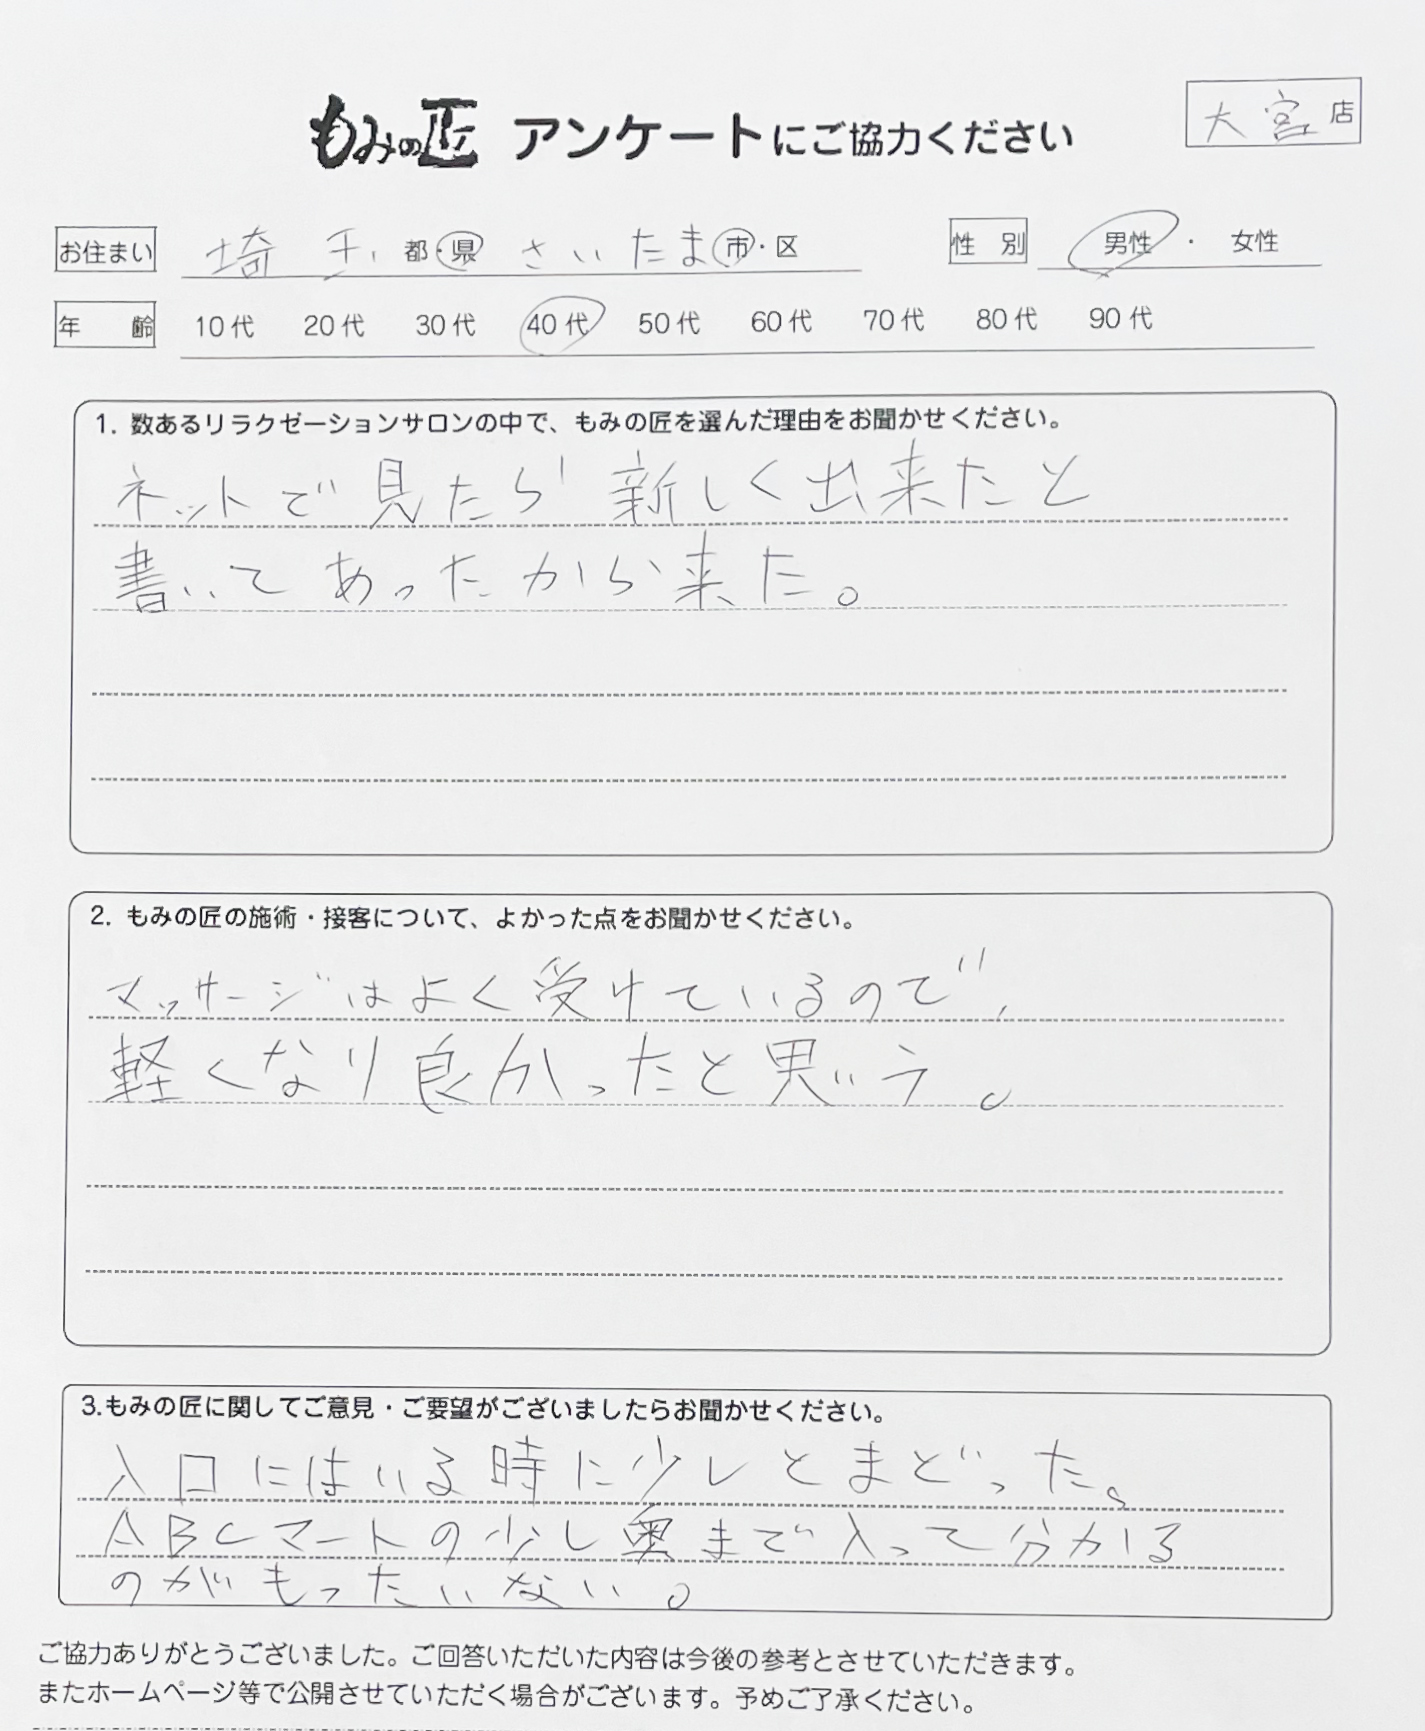 もみの匠 アンケートにご協力ください
大宮 店
お住まい 埼玉 都・県 さいたま 市・区 性別 男性 ・ 女性
年齢 10代 20代 30代 40代 50代 60代 70代 80代 90代
1. 数あるリラクゼーションサロンの中で、もみの匠を選んだ理由をお聞かせください。
ネットで見たら新しく出来たと
書いてあったから来た。
2. もみの匠の施術・接客について、よかった点をお聞かせください。
マッサージはよく受けているので、
軽くなり良かったと思いう。
3.もみの匠に関してご意見・ご要望がございましたらお聞かせください。
入口にはいる時に少しとまどった。
ABCマートの少し奥まで入って分かる
のがもったいない。
ご協力ありがとうございました。ご回答いただいた内容は今後の参考とさせていただきます。
またホームページ等で公開させていただく場合がございます。予めご了承ください。